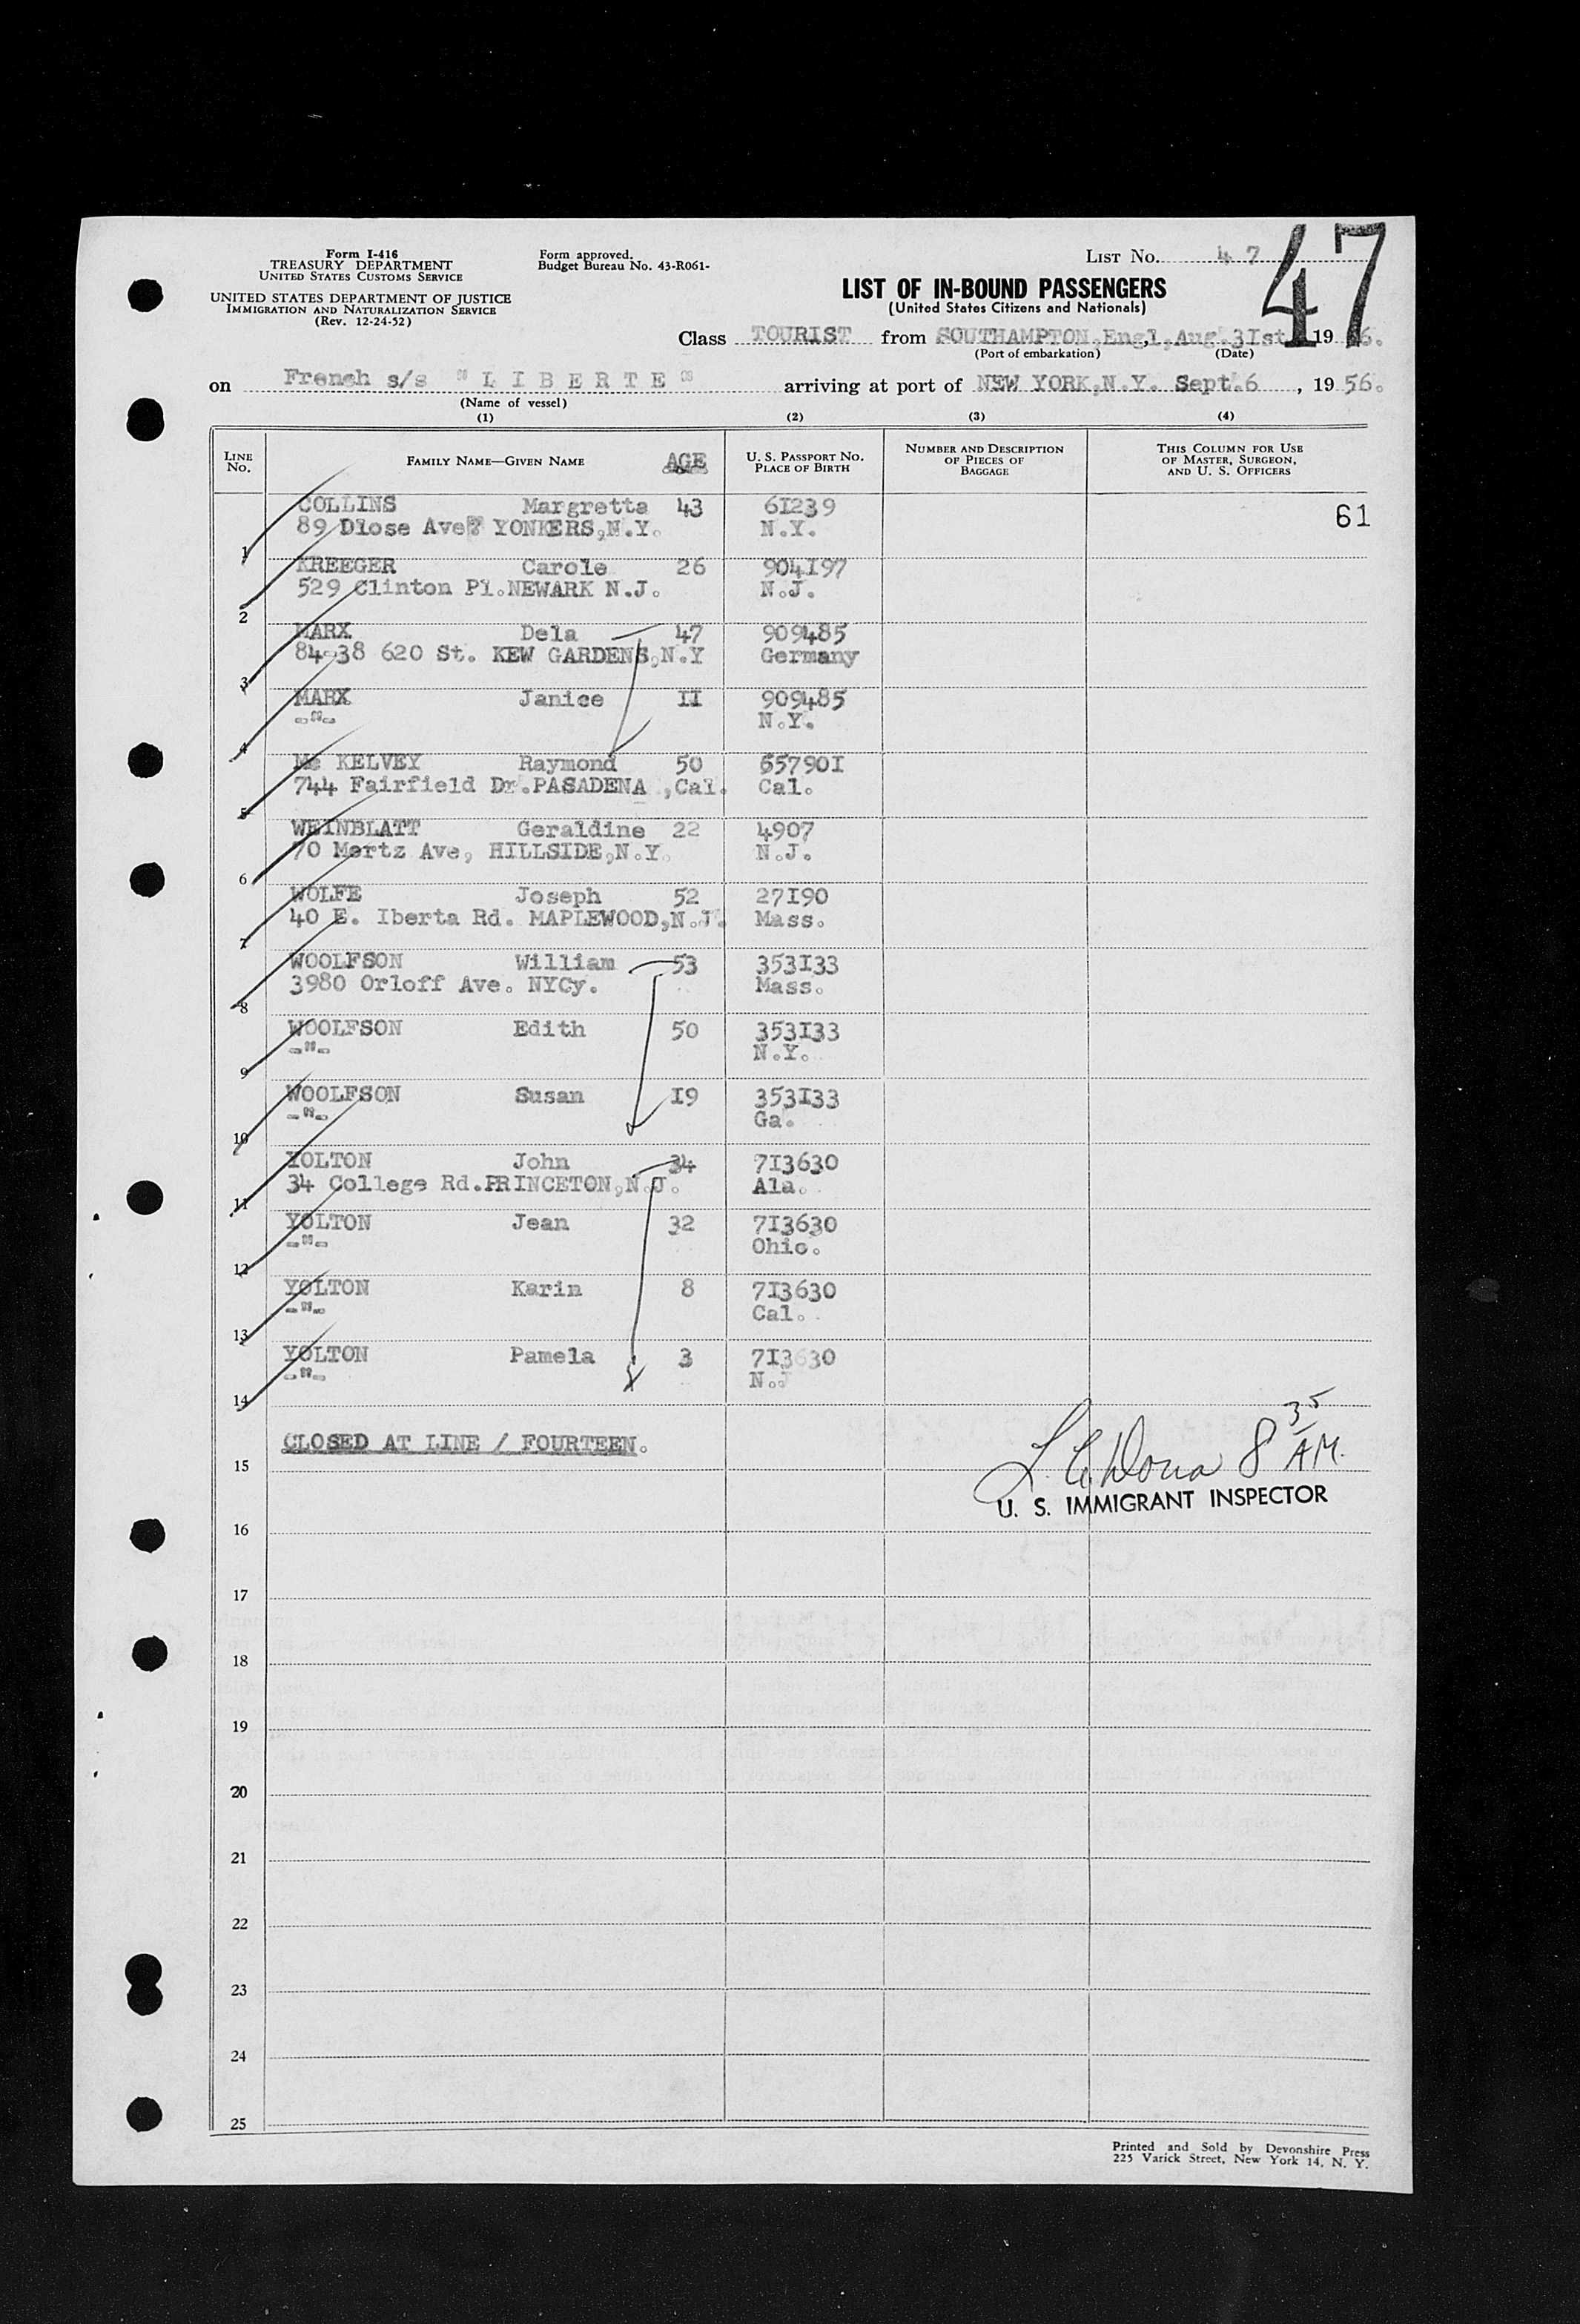 Form I-416
TREASURY DEPARTMENT
UNITED STATES CUSTOMS SERVICE
UNITED STATES DEPARTMENT OF JUSTICE
IMMIGRATION AND NATURALIZATION SERVICE
(Rev. 12-24-52)
Form approved.
Budget Bureau No. 43-R061-
LIST No. 47
47
LIST OF IN-BOUND PASSENGERS
(United States Citizens and Nationals)
Class TOURIST from SOUTHAMPTON,Engl,Aug.31st 19 56.
(Port of embarkation) (Date)
on French s/s "LIBERTE" arriving at port of NEW YORK,N.Y. Sept.6, 19 56.
(Name of vessel)
(1) (2) (3) (4)
LINE No. FAMILY NAME—GIVEN NAME AGE U. S. PASSPORT NO. PLACE OF BIRTH NUMBER AND DESCRIPTION OF PIECES OF BAGGAGE THIS COLUMN FOR USE OF MASTER, SURGEON, AND U. S. OFFICERS
COLLINS Margretta 43 61239 61
1 89 Dlose Ave? YONKERS,N.Y. N.Y.
KREEGER Carole 26 904197
2 529 Clinton Pl.NEWARK N.J. N.J.
MARX Dela 47 909485
3 84-38 620 St. KEW GARDENS,N.Y Germany
MARX Janice II 909485
4 -"- N.Y.
Mc KELVEY Raymond 50 657901
5 744 Fairfield Dr.PASADENA ,Cal. Cal.
WEINBLATT Geraldine 22 4907
6 70 Mertz Ave, HILLSIDE,N.Y. N.J.
WOLFE Joseph 52 27I90
7 40 E. Iberta Rd. MAPLEWOOD,N.J. Mass.
WOOLFSON William 53 353I33
8 3980 Orloff Ave. NYCy. Mass.
WOOLFSON Edith 50 353I33
9 -"- N.Y.
WOOLFSON Susan I9 353I33
10 -"- Ga.
YOLTON John 34 7I3630
11 34 College Rd.PRINCETON,N.J. Ala.
YOLTON Jean 32 7I3630
12 -"- Ohio.
YOLTON Karin 8 7I3630
13 -"- Cal.
YOLTON Pamela 3 7I3630
14 -"- N.J
15 CLOSED AT LINE / FOURTEEN.
8 35 A.M.
U. S. IMMIGRANT INSPECTOR
16
17
18
19
20
21
22
23
24
25
Printed and Sold by Devonshire Press
225 Varick Street, New York 14, N. Y.